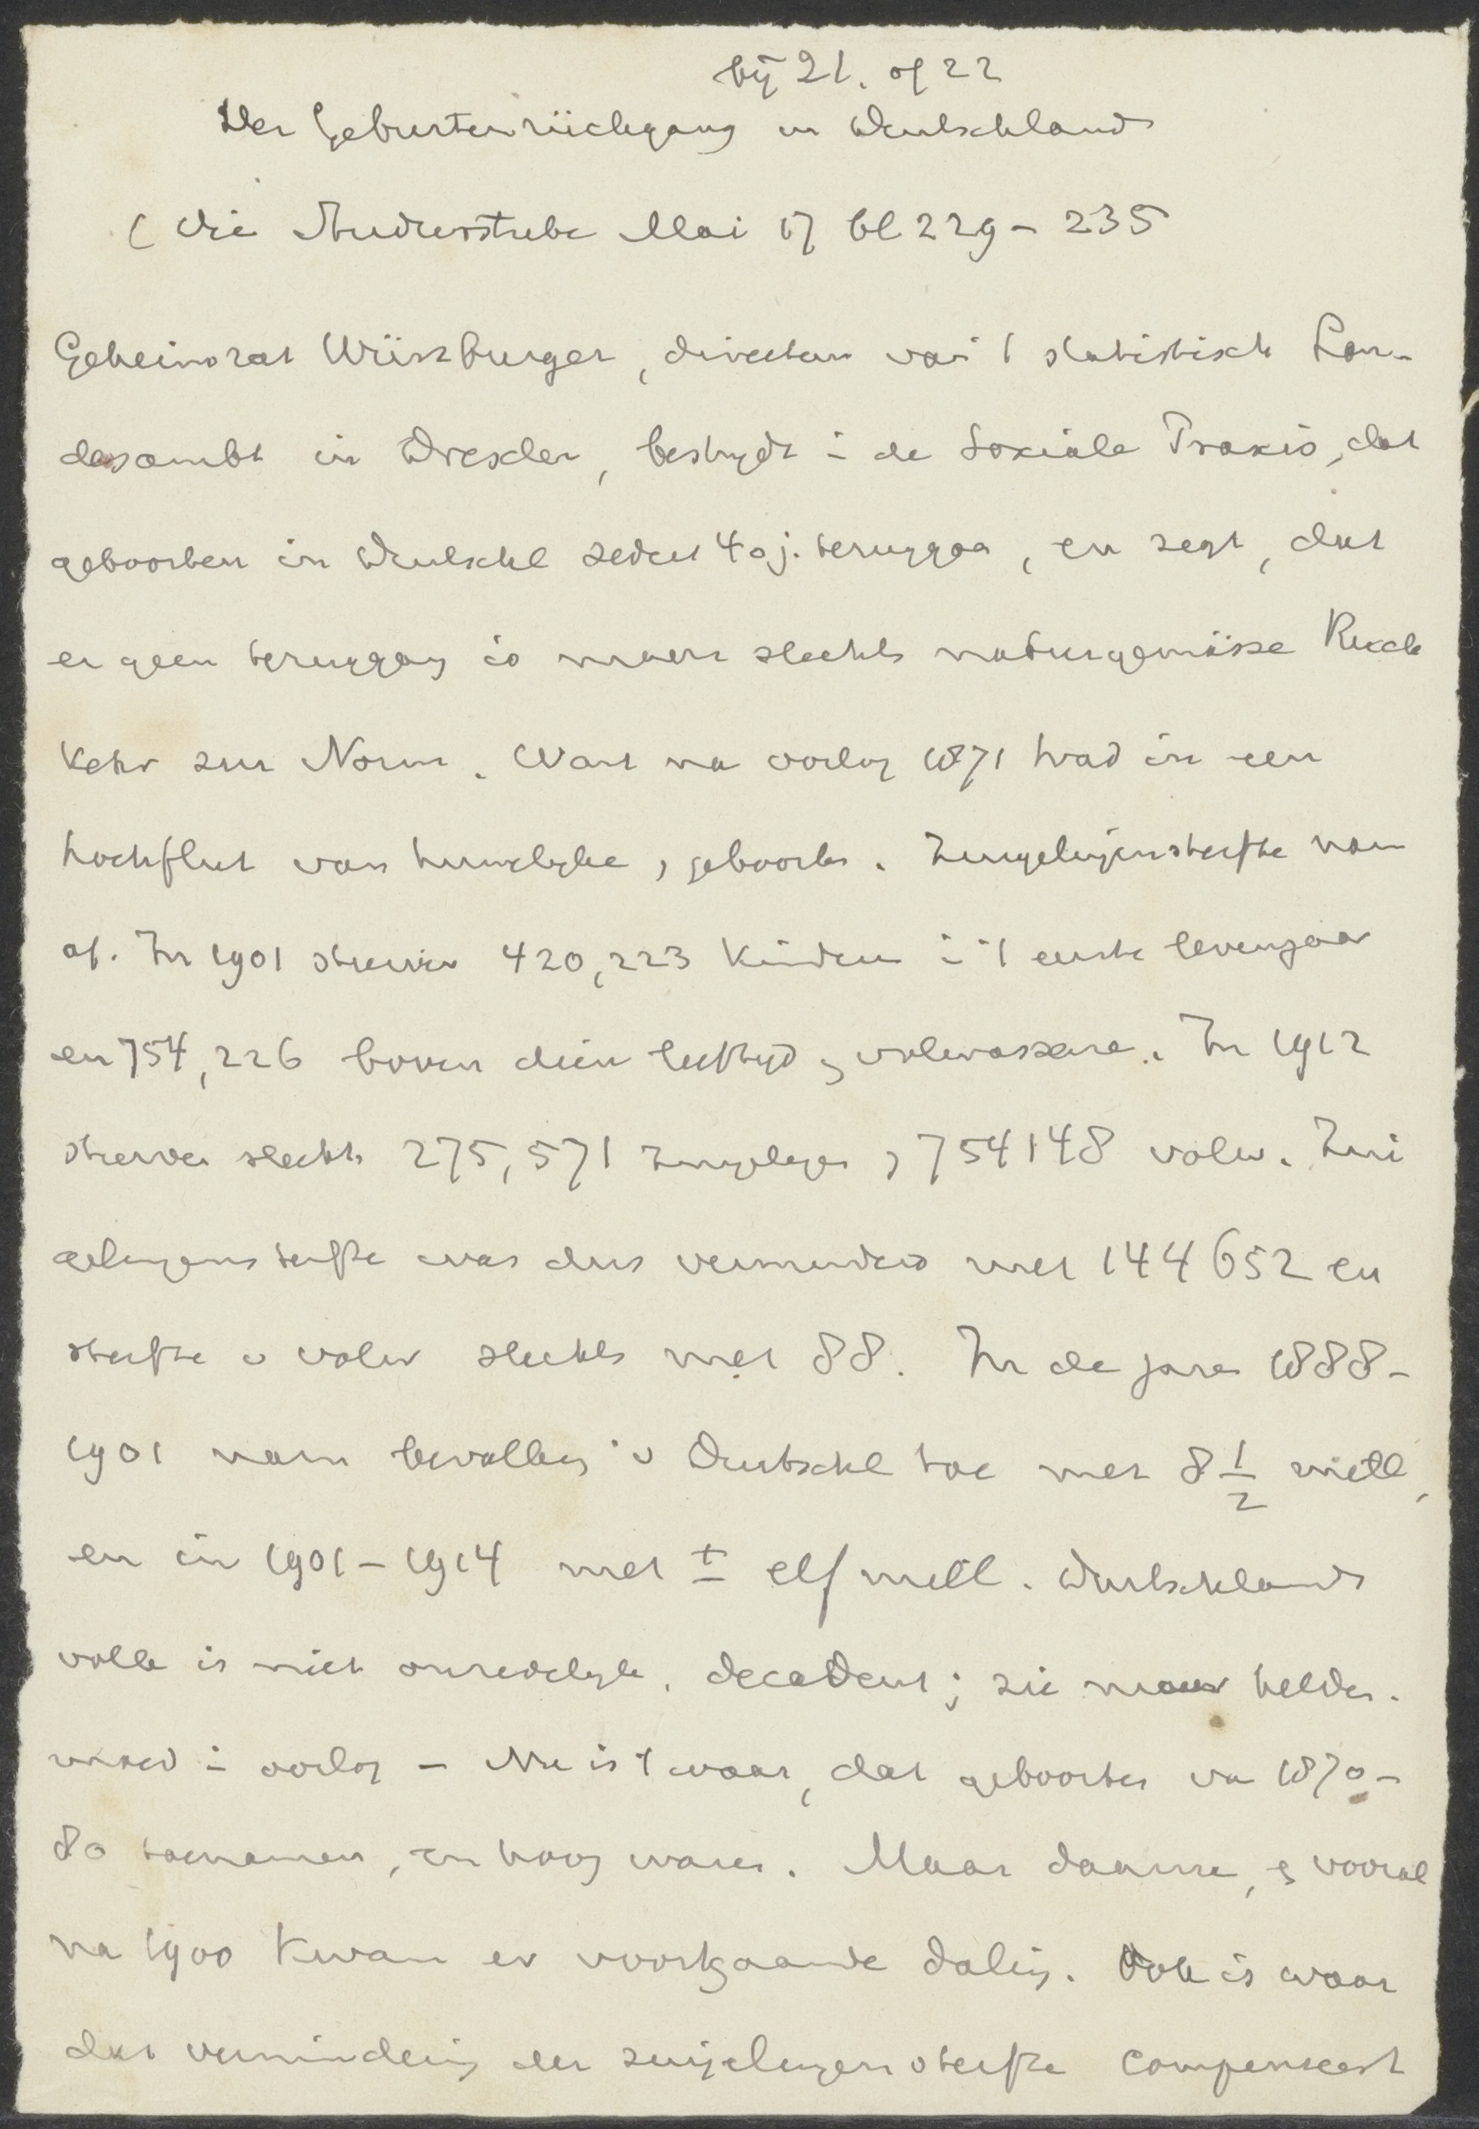 bij 21. of 22
Der Geburtenrückgang in Deutschland
( Die Studierstube Mai 17 bl 229 - 235
Geheimrat Würzburger, directeur van 't statistisch Lan-
desambt in Dresden, bestrijdt i de Soziale Praxis, dat
geboorten in Deutschl sedert 40 j. teruggaa, en zegt, dat
er geen teruggang is maar slechts naturgemässe Rück
kehr zur Norm. Want na oorlog 1871 trad in een
hochflut van huwelijke, geboorte. Zuigelingensterfte nam
af. In 1901 stierven 420,223 kinderen i 't eerste levensjaar
en 754,226 boven dien leeftijd, volwassene. In 1912
stierve slechts 275,571 zuigelinge, 754148 volw. Zui
gelingensterfte was dus verminderd met 144652 en
sterfte v volw slechts met 88. In de jare 1888-
1901 nam bevolking v Deutschl toe met 8 1/2 mill,
en in 1901 - 1914 met ± elf mill. Deutschlands
volk is niet onzedelijk, decadent; zie maar helden-
moed i oorlog - Nu is 't waar, dat geboortes va 1870-
80 toenamen, en hoog waren. Maar daarna, en vooral
na 1900 kwam er voortgaande daling. Ook is waar
dat vermindering der zuigelingensterfte compenseert